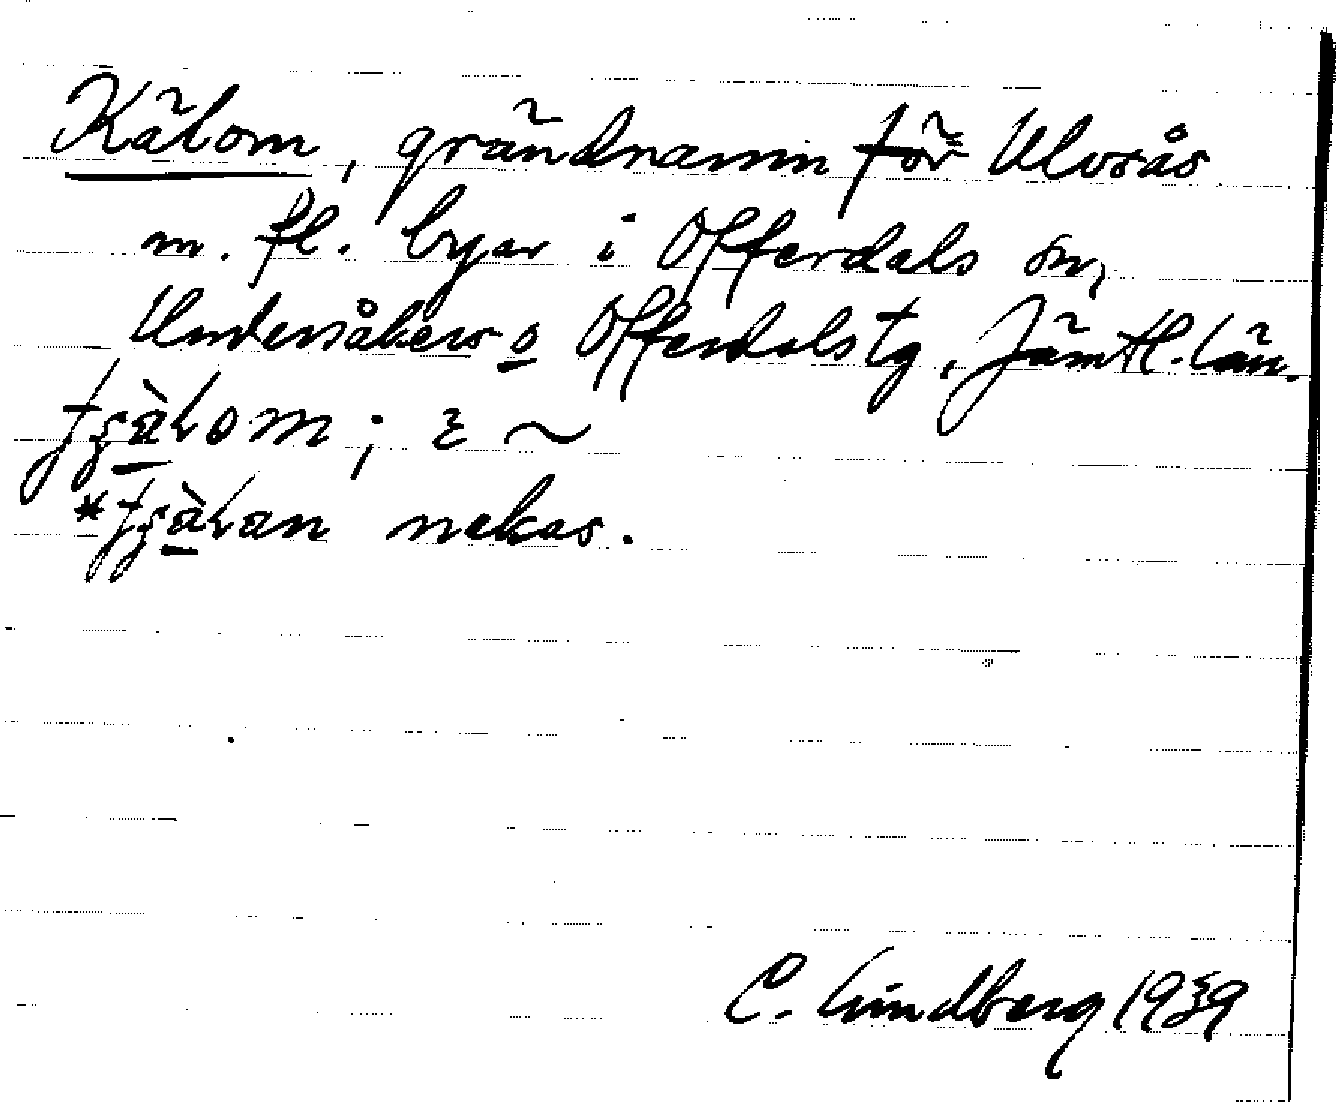 Kälom, grändnamn för Ulvsås
m. fl. byar i Offerdals sn,
Undersåkers o Offerdals tg, Jämtl. län.
nekas.
C. Lindberg 1939